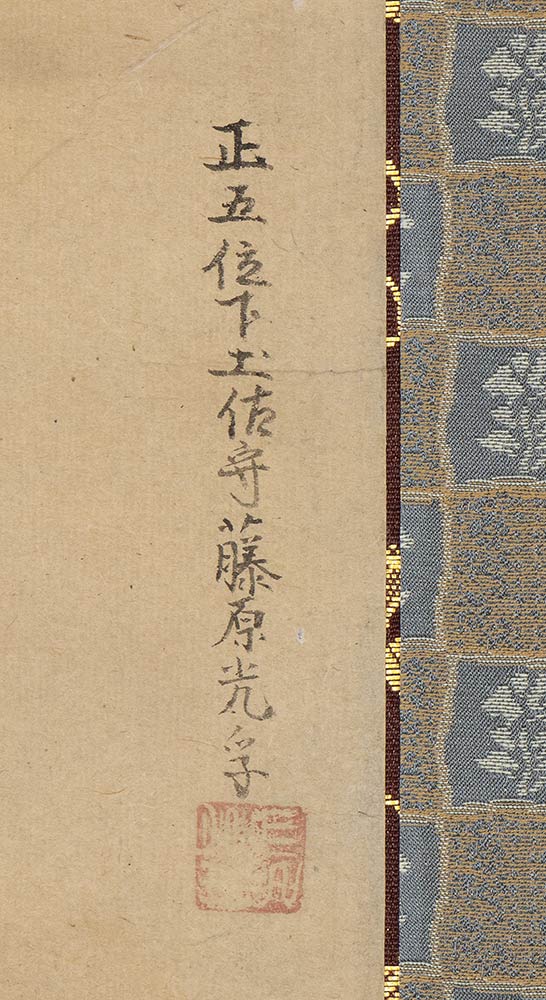 正五位下土佐守藤原光孚